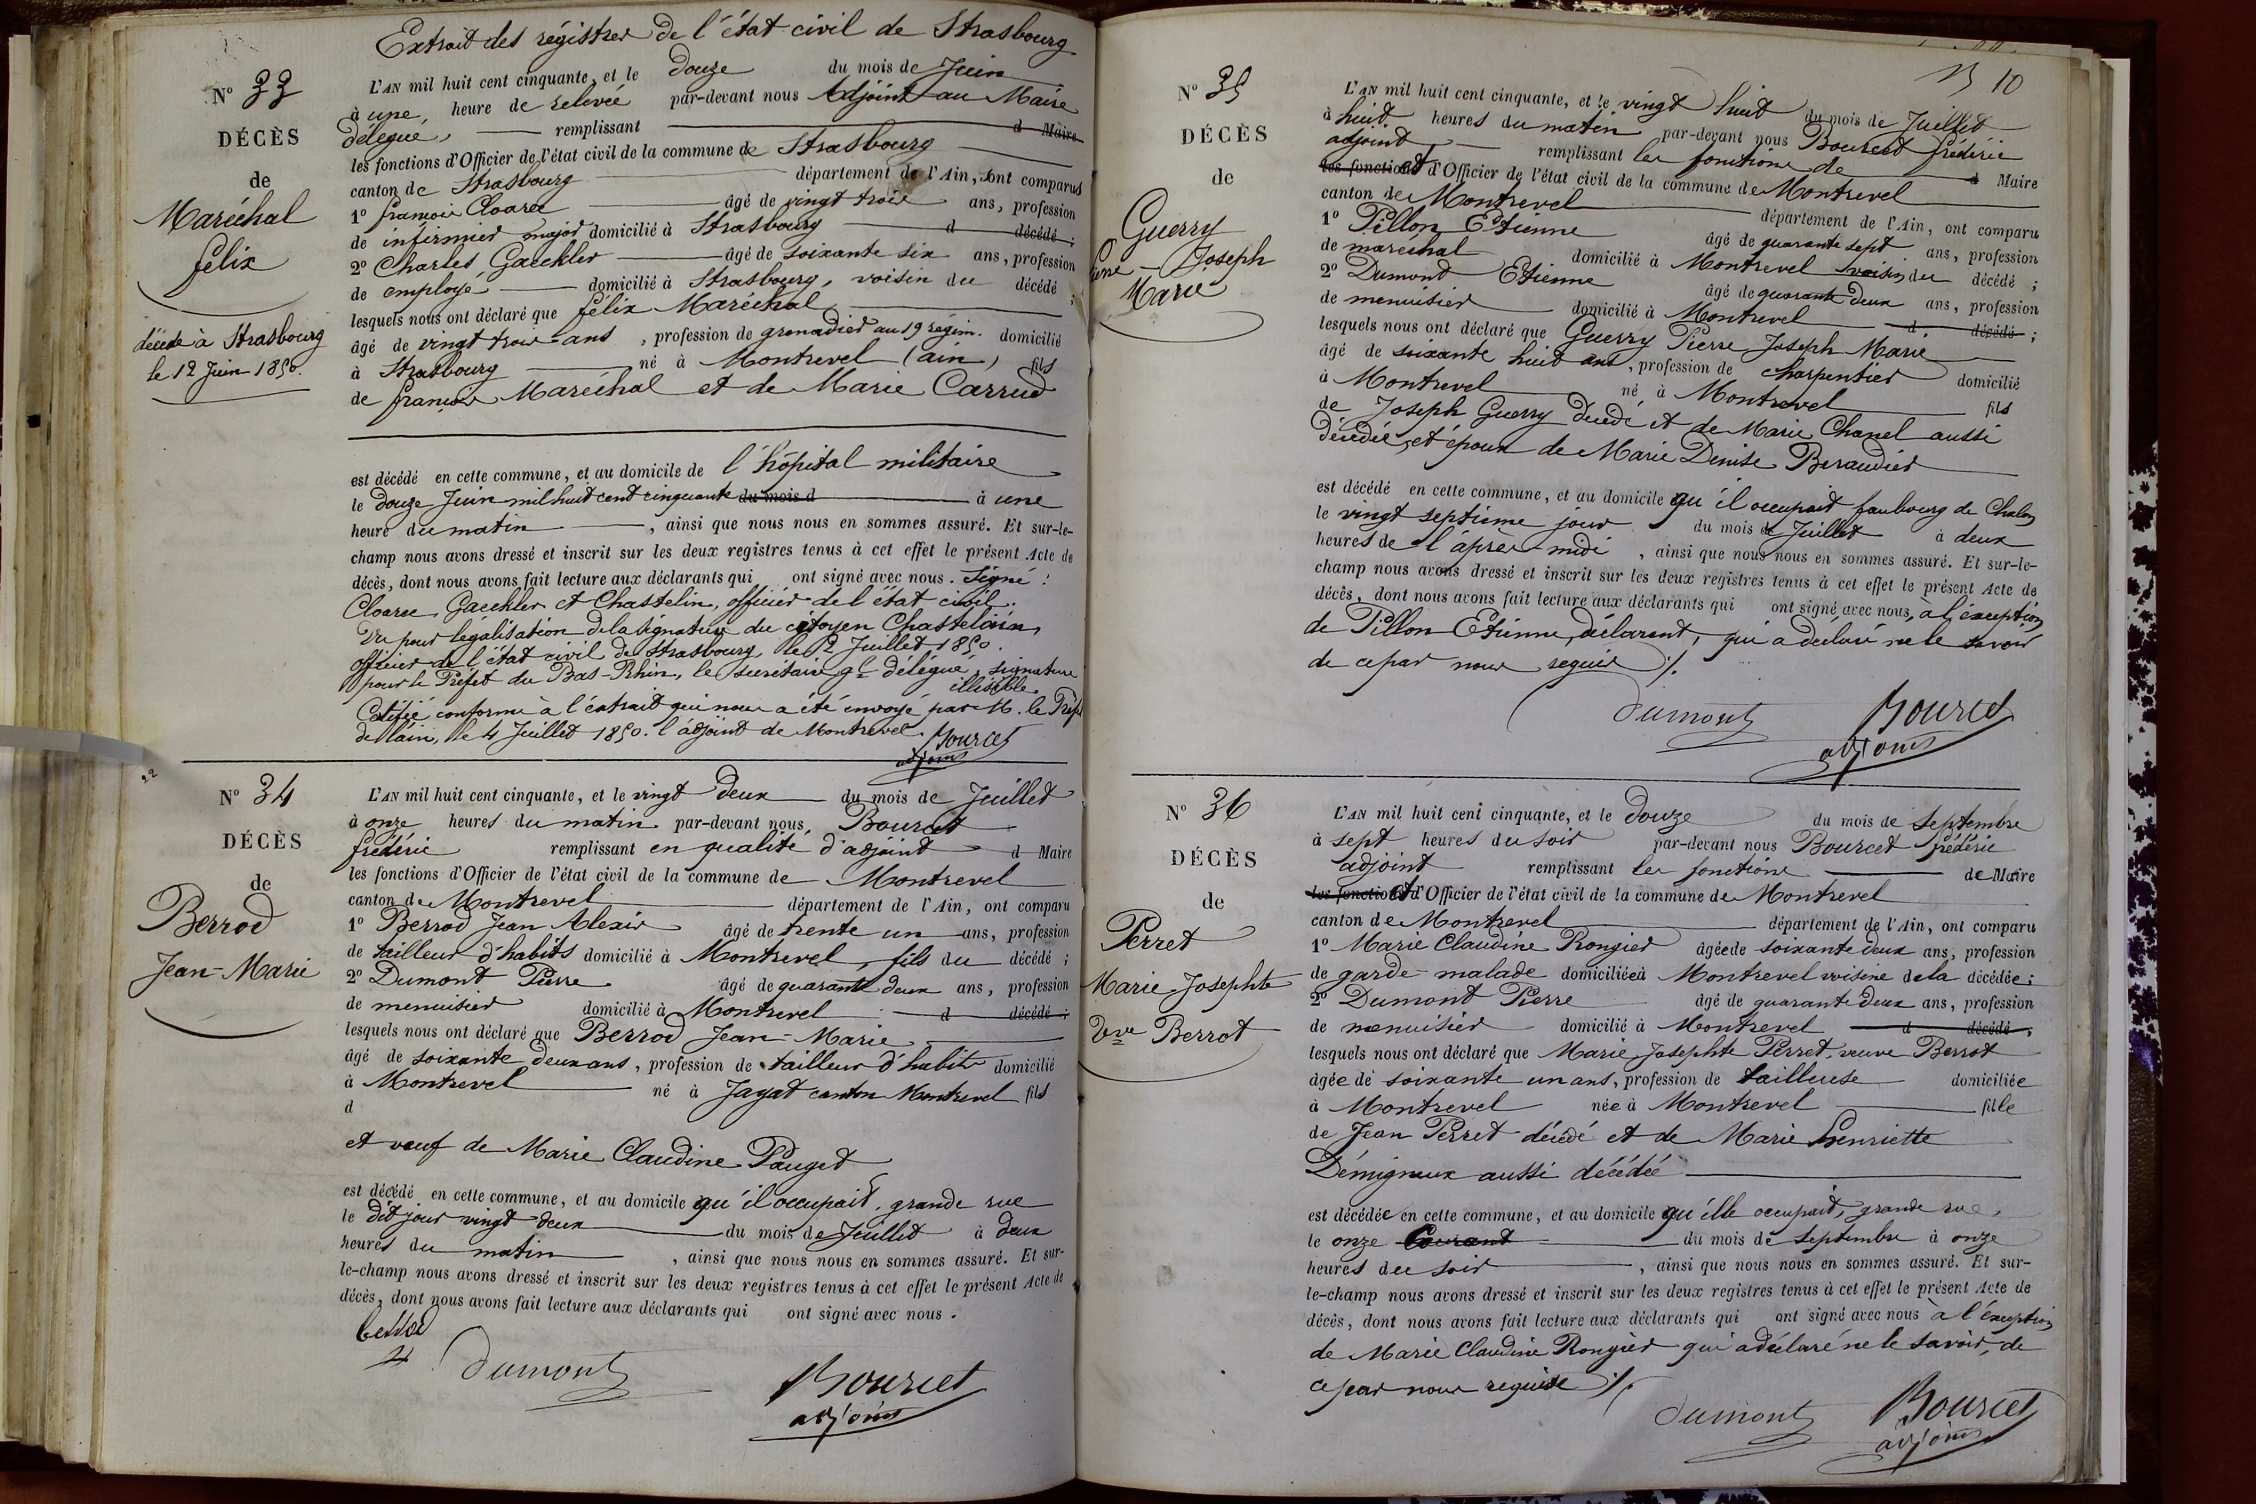 Extrait des régistres de l'état civil de Strasbourg
N° 33
DÉCÈS
de
Maréchal
félix
décédé à Strasbourg
le 12 Juin 1850.
L'AN mil huit cent cinquante, et le douze du mois de Juin
à une heure de relevée par-devant nous Adjoint au Maire
délégué, remplissant d Maire
les fonctions d'Officier de l'état civil de la commune de Strasbourg
canton de Strasbourg département de l'Ain, sont comparus
1° françois Cloarec âgé de vingt trois ans, profession
de infirmier major domicilié à Strasbourg d décédé ;
2° Charles Gaeckler âgé de soixante six ans, profession
de employé domicilié à Strasbourg, voisin du décédé ;
lesquels nous ont déclaré que félix Maréchal
âgé de vingt trois ans, profession de grenadier au 19 régim. domicilié
à Strasbourg né à Montrevel (ain) fils
de françois Maréchal et de Marie Carrud
est décédé en cette commune, et au domicile de l'hôpital militaire
le douze Juin mil huit cent cinquante du mois d à une
heure du matin , ainsi que nous nous en sommes assuré. Et sur-le-
champ nous avons dressé et inscrit sur les deux registres tenus à cet effet le présent Acte de
décès, dont nous avons fait lecture aux déclarants qui ont signé avec nous. Signé :
Cloarec, Gaeckler et Chastelin, officier de l'état civil.
Vu pour légalisation de la signature du citoyen Chastelain,
officier de l'état civil de Strasbourg, le 2 Juillet 1850.
pour le Préfet du Bas-Rhin, le secrétaire gl délégué, signature
illisible.
Certifié conforme à l'extrait qui nous a été envoyé par M. le Préfet
de l'ain, le 4 Juillet 1850. l'adjoint de Montrevel.
Bourcet
adjoint
22
N° 34
DÉCÈS
de
Berrod
Jean-Marie
L'AN mil huit cent cinquante, et le vingt deux du mois de Juillet
à onze heures du matin par-devant nous, Bourcet
frédéric remplissant en qualité d'adjoint d Maire
les fonctions d'Officier de l'état civil de la commune de Montrevel
canton de Montrevel département de l'Ain, ont comparu
1° Berrod Jean Alexis âgé de trente un ans, profession
de tailleur d'habits domicilié à Montrevel, fils du décédé ;
2° Dumont Pierre âgé de quarante deux ans, profession
de menuisier domicilié à Montrevel d décédé ;
lesquels nous ont déclaré que Berrod Jean-Marie
âgé de soixante deux ans, profession de tailleur d'habits domicilié
à Montrevel né à Jayat canton Montrevel fils
d
et veuf de Marie Claudine Pauget
est décédé en cette commune, et au domicile qu'il occupait, grande rue
le dit jour vingt deux du mois de Juillet à deux
heures du matin , ainsi que nous nous en sommes assuré. Et sur-
le-champ nous avons dressé et inscrit sur les deux registres tenus à cet effet le présent Acte de
décès, dont nous avons fait lecture aux déclarants qui ont signé avec nous.
Dumont
Bourcet
adjoint
10
N° 35
DÉCÈS
de
Guerry
Joseph
Marie
L'AN mil huit cent cinquante, et le vingt huit du mois de Juillet
à huit heures du matin par-devant nous Bourcet frédéric
adjoint remplissant les fonctions de d Maire
les fonctions et d'Officier de l'état civil de la commune de Montrevel
canton de Montrevel département de l'Ain, ont comparu
1° Pillon Etienne âgé de quarante sept ans, profession
de maréchal domicilié à Montrevel voisin du décédé ;
2° Dumond Etienne âgé de quarante deux ans, profession
de menuisier domicilié à Montrevel d décédé ;
lesquels nous ont déclaré que Guerry Pierre Joseph Marie
âgé de soixante huit ans, profession de charpentier domicilié
à Montrevel né à Montrevel fils
de Joseph Guerry décédé et de Marie Chanel aussi
décédée, et époux de Marie Denise Beraudier
est décédé en cette commune, et au domicile qu'il occupait faubourg de Chalon
le vingt septième jour du mois de Juillet à deux
heures de l'après-midi , ainsi que nous nous en sommes assuré. Et sur-le-
champ nous avons dressé et inscrit sur les deux registres tenus à cet effet le présent Acte de
décès, dont nous avons fait lecture aux déclarants qui ont signé avec nous, à l'exception
de Pillon Etienne, déclarant, qui a déclaré ne le savoir
de ce par nous requis ./.
Dumont
Bourcet
adjoint
N° 36
DÉCÈS
de
Perret
Marie-Josephte
Vve Berrot
L'AN mil huit cent cinquante, et le douze du mois de septembre
à sept heures du soir par-devant nous Bourcet frédéric
adjoint remplissant les fonctions de Maire
les fonctions et d'Officier de l'état civil de la commune de Montrevel
canton de Montrevel département de l'Ain, ont comparu
1° Marie Claudine Rongier âgée de soixante deux ans, profession
de garde-malade domiciliée à Montrevel voisine de la décédée ;
2° Dumont Pierre âgé de quarante deux ans, profession
de menuisier domicilié à Montrevel d décédé ;
lesquels nous ont déclaré que Marie Josephte Perret, veuve Berrot
âgée de soixante un ans, profession de tailleuse domiciliée
à Montrevel née à Montrevel fille
de Jean Perret décédé et de Marie Henriette
Démigneux aussi décédée
est décédée en cette commune, et au domicile qu'elle occupait, grande rue,
le onze Courant du mois de septembre à onze
heures du soir , ainsi que nous nous en sommes assuré. Et sur-
le-champ nous avons dressé et inscrit sur les deux registres tenus à cet effet le présent Acte de
décès, dont nous avons fait lecture aux déclarants qui ont signé avec nous à l'exception
de Marie Claudine Rongier qui a déclaré ne le savoir, de
ce par nous requise ./.
Dumont
Bourcet
adjoint